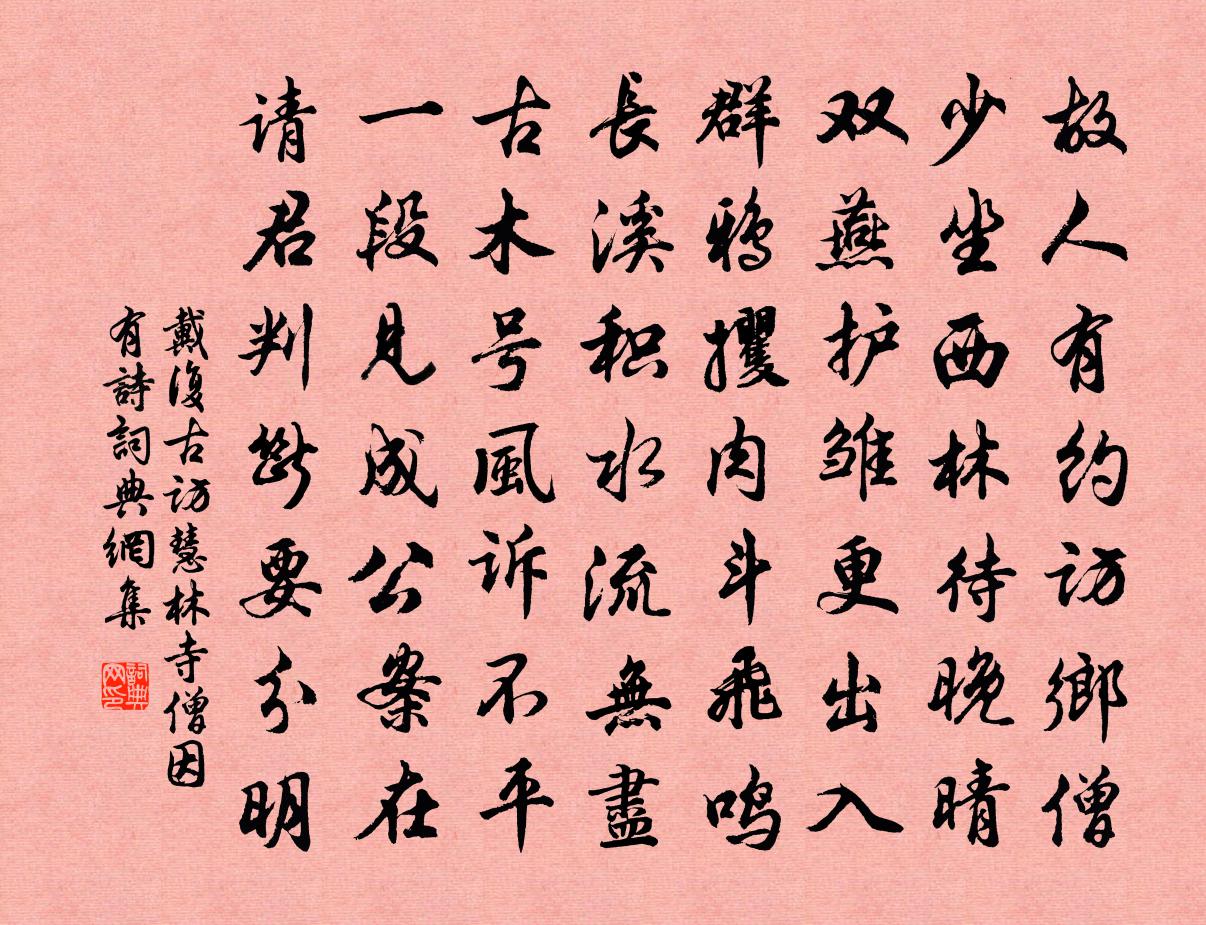 故人有约访鄉僧
少坐西林待晚晴
双燕护雏更出入
群鸦攫肉斗飛鸣
長溪积水流無盡
古木号風诉不平
一段見成公案在
请君判斷要分明
戴復古訪慧林寺僧因
有詩詞典網集
詞典
网印